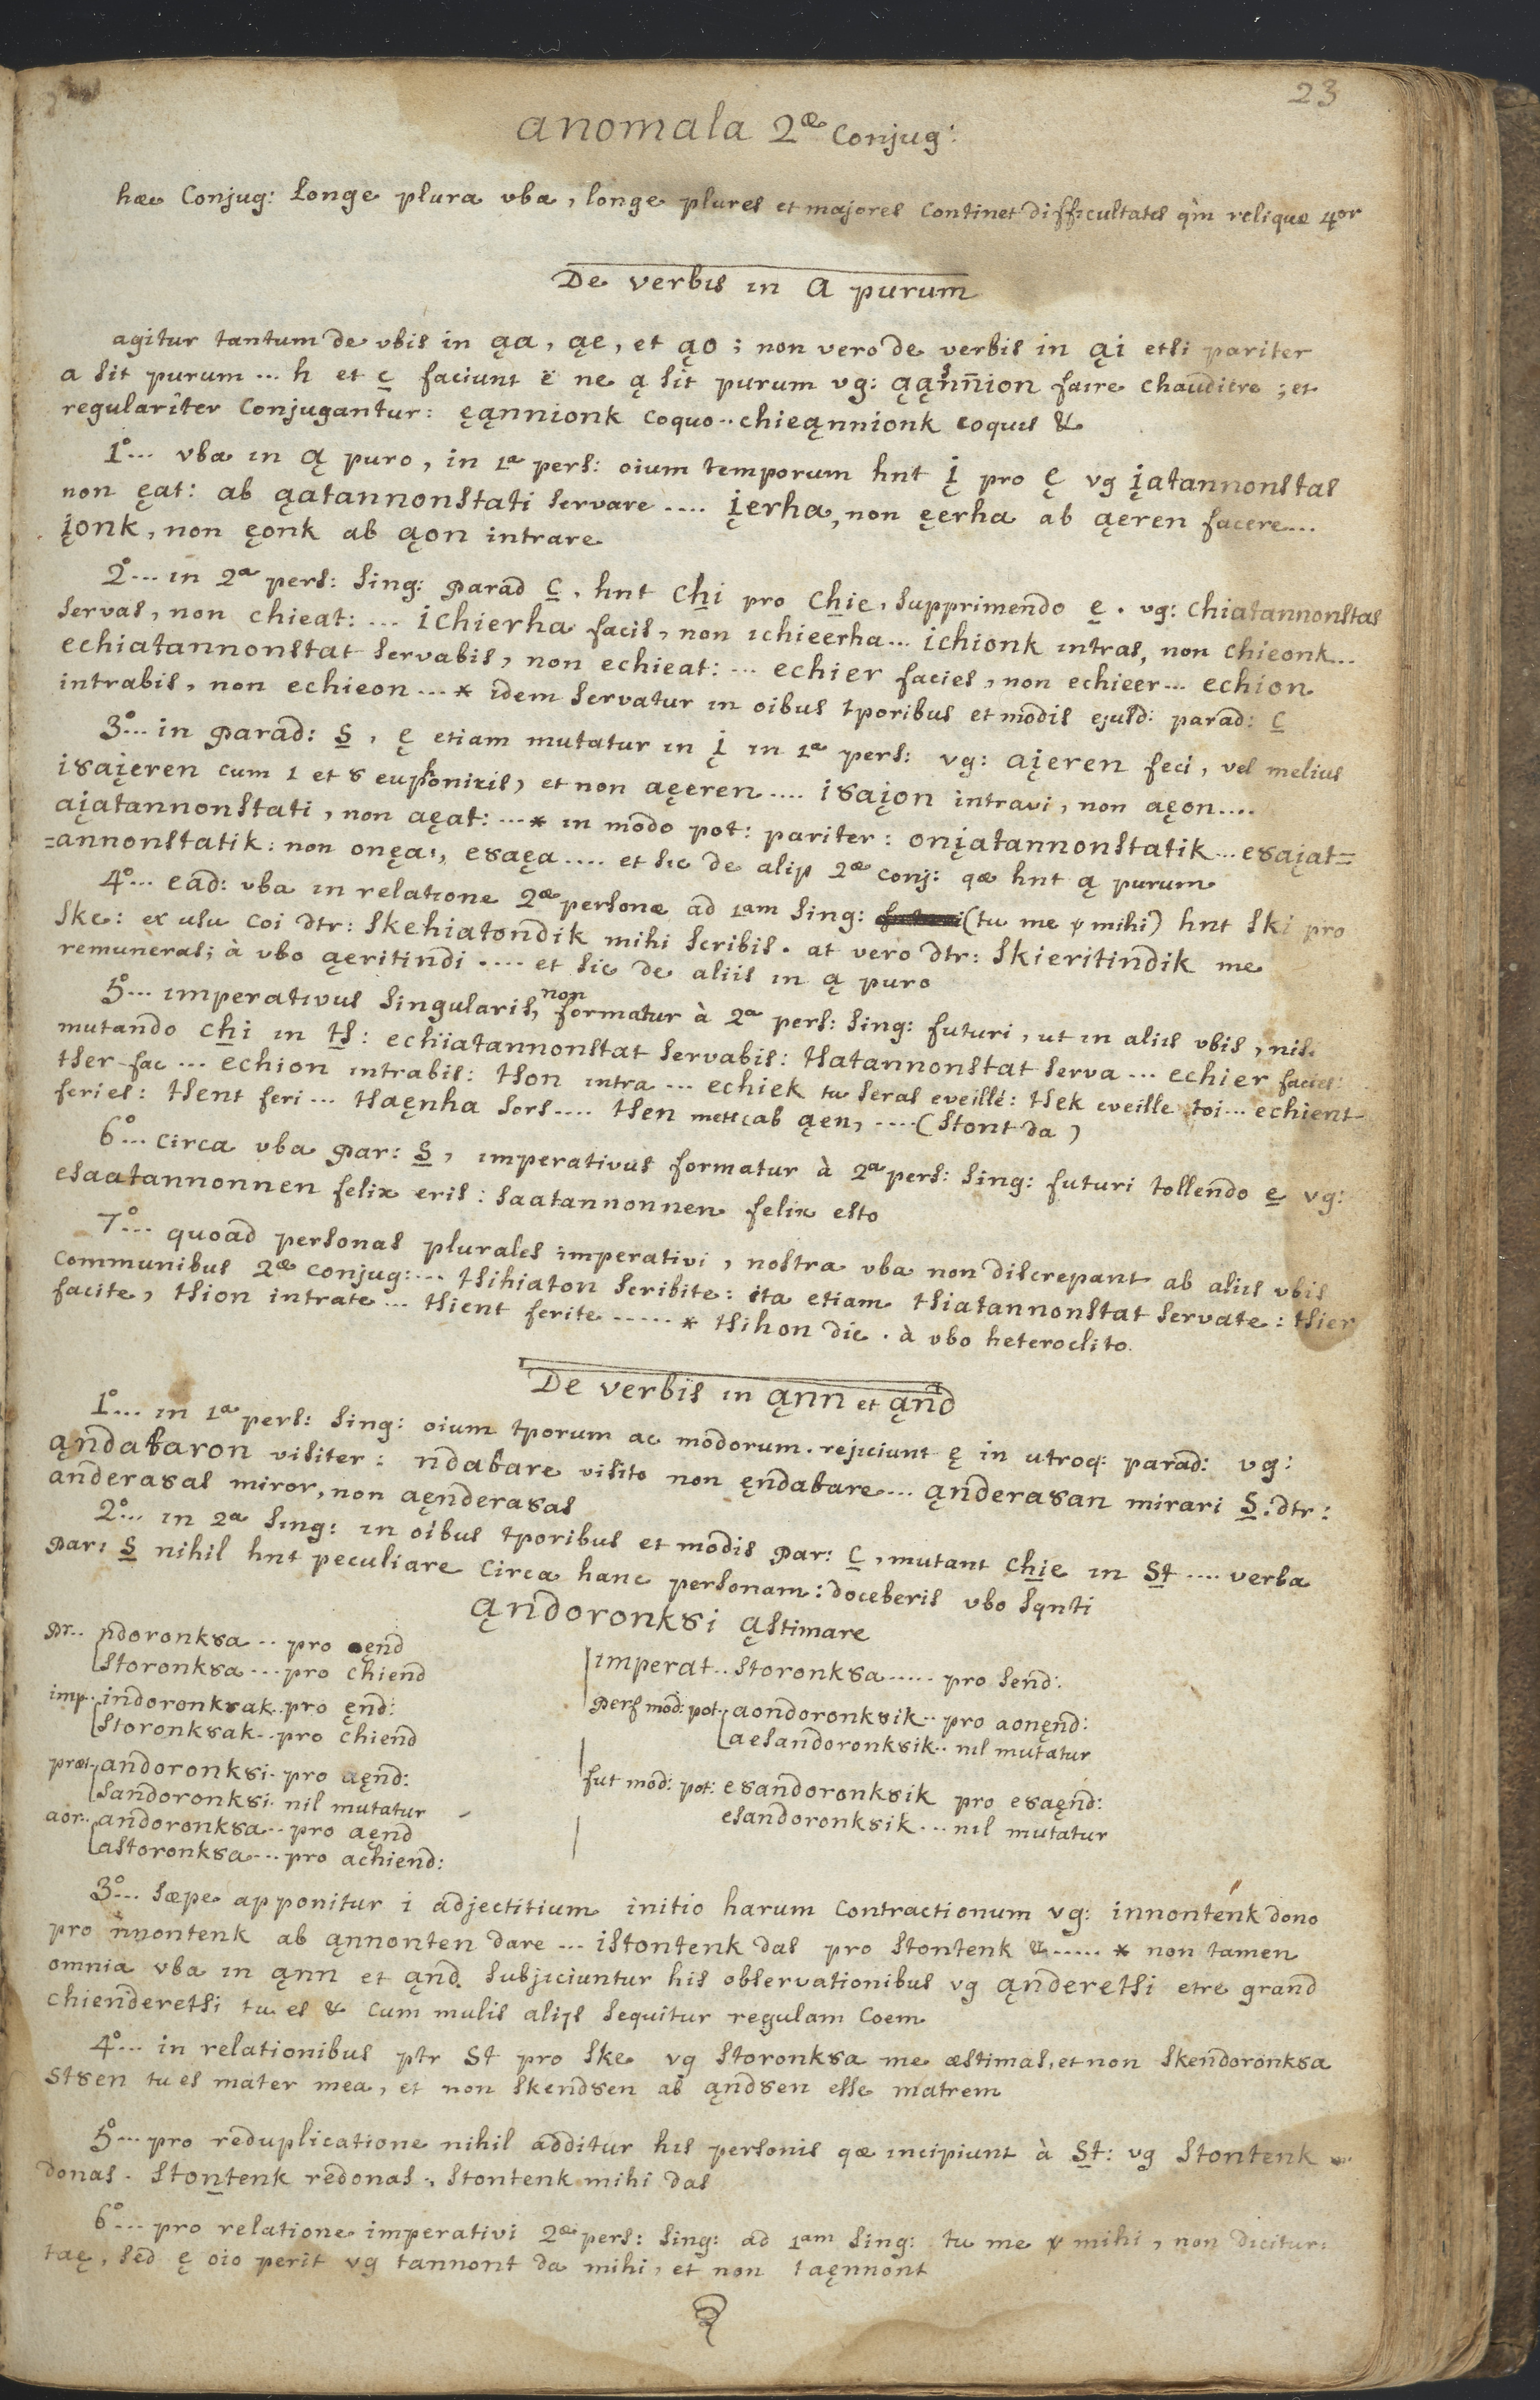 23
anomala 2æ Conjug:
hæc Conjug: Longe plura vba, longe plures et majores Continet difficultates qm̀ reliquæ 4or
De verbis in a purum
agitur tantum de vbis in ąa, ąe, et ąo; non vero de verbis in ąi etsi pariter
a sit purum ... h et c̲ faciunt ë ne ą sit purum vg: ąąnnion faire chaudiere; et
regulariter Conjugantur: ęąnnionk coquo .. chieąnnionk coquis &
1°... vba in ą puro, in 1a pers: oium temporum hnt į pro ę vg įatannonstas
non ęat: ab ąatannonstati servare .... įerha, non ęerha ab ąeren facere...
įonk, non ęonk ab ąon intrare
2°... in 2a pers: sing: parad c̲, hnt chi pro chie, supprimendo e̲. vg: chiatannonstas
servas, non chieat: ... ichierha facis, non ichieerha... ichionk intras, non chieonk...
echiatannonstat servabis, non echieat: ... echier facies, non echieer... echion
intrabis, non echieon ... * idem servatur in oibus tporibus et modis ejusd: parad: c̲
3°... in parad: s̲, ę etiam mutatur in į in 1a pers: vg: aįeren feci, vel melius
i8aįeren cum i et 8 euphonicis, et non aęeren .... i8aįon intravi, non aęon....
aįatannonstati, non aęat: ...* in modo pot: pariter: onįatannonstatik... e8aįat=
=annonstatik: non onęa:, e8aęa .... et sic de aliis 2æ conj: qæ hnt ą purum
4°... ead: vba in relatione 2æ personæ ad 1am sing: (tu me ł mihi) hnt ski pro
ske: ex usu coi dtr: skehiatondik mihi scribis. at vero dtr: skieritindik me
remuneras; à vbo ąeritindi .... et sic de aliis in ą puro
5°... imperativus singularis, non formatur à 2a pers: sing: futuri, ut in aliis vbis, nisi
mutando chi in ts: echiatannonstat servabis: tsatannonstat serva ... echier facies:
tser fac ... echion intrabis: tson intra ... echiek tu seras eveillé: tsek eveille toi ... echient
feries: tsent feri ... tsaęnha sors .... tsen mets ab ąen, .... (stont da)
6°... circa vba par: s̲, imperativus formatur à 2a pers: sing: futuri tollendo e̲ vg:
esaatannonnen felix eris: saatannonnen felix esto
7°... quoad personas plurales imperativi, nostra vba non discrepant ab aliis vbis
communibus 2æ conjug: ... tsihiaton scribite: ita etiam tsiatannonstat servate: tsier
facite, tsion intrate ... tsient ferite ..... * tsihon dic. à vbo heteroclito.
De verbis in ąnn et ąnd
1°... in 1a pers: sing: oium tporum ac modorum. rejiciunt ę in utroq: parad: vg:
ąndabaron visiter: ndabare visito non ęndabare... ąndera8an mirari s̲. dtr:
andera8as miror, non aęndera8as
2°... in 2a sing: in oibus tporibus et modis par: c̲, mutant chie in st .... verba
par: s̲ nihil hnt peculiare circa hanc personam: doceberis vbo sqnti
ąndoronk8i æstimare
pr.. ndoronk8a .. pro ęnd
storonk8a ... pro chiend
imp.. indoronk8ak.. pro ęnd:
storonk8ak .. pro chiend
præt.. andoronk8i. pro aęnd:
sandoronk8i. nil mutatur
aor.. andoronk8a .. pro aęnd
astoronk8a ... pro achiend:
imperat.. storonk8a ..... pro send:
perf mod: pot: aondoronk8ik .. pro aonęnd:
aesandoronk8ik .. nil mutatur
fut mod: pot: e8andoronk8ik pro e8aęnd:
esandoronk8ik ... nil mutatur
3°... sæpe apponitur i adjectitium initio harum contractionum vg: innontenk dono
pro nnontenk ab ąnnonten dare ... istontenk das pro stontenk & ..... * non tamen
omnia vba in ąnn et ąnd. subjiciuntur his observationibus vg ąnderetsi etre grand
chienderetsi tu es & cum mulis alijs sequitur regulam coem
4°... in relationibus ptr st pro ske vg storonk8a me æstimas, et non skendoronk8a
st8en tu es mater mea, et non skend8en ab ąnd8en esse matrem
5°... pro reduplicatione nihil additur his personis qæ incipiunt à st: vg stontenk
donas. stontenk redonas., stontenk mihi das
6°... pro relatione imperativi 2æ pers: sing: ad 1am sing: tu me ł mihi, non dicitur:
taę, sed ę oio perit vg tannont da mihi, et non taęnnont